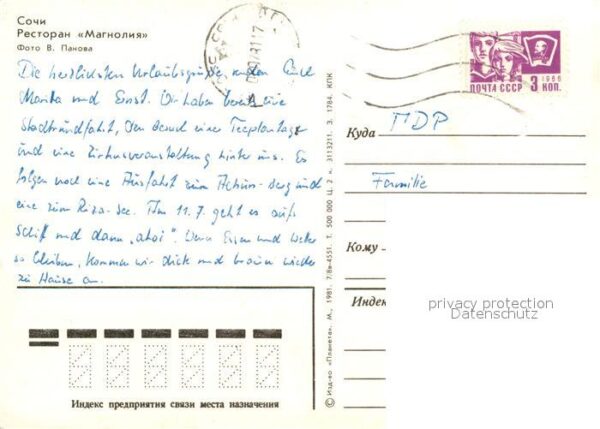 Сочи
Ресторан «Магнолия»
Фото В. Панова
Die herzlichsten Urlaubsgrüße senden Euch
Marita und Ernst. Wir haben bereits eine
Stadtrundfahrt, den Besuch einer Teeplantage
und eine Zirkusveranstaltung hinter uns. Es
folgen noch eine Ausfahrt zum Achun-Berg und
eine zum Riza-See. Am 11.7. geht es aufs
Schiff und dann „ahoi“. Wenn Essen und Wetter
so bleiben, kommen wir dick und braun wieder
zu Hause an.
Индекс предприятия связи места назначения
© Изд-во «Планета». М., 1981. 7/8в-4551. Т. 500 000 Ц. 2 к. 3113211. З. 1784. КПК
ПОЧТА СССР 3 КОП.
1966
Куда
ГДР
Familie
Кому
Индекс
privacy protection
Datenschutz